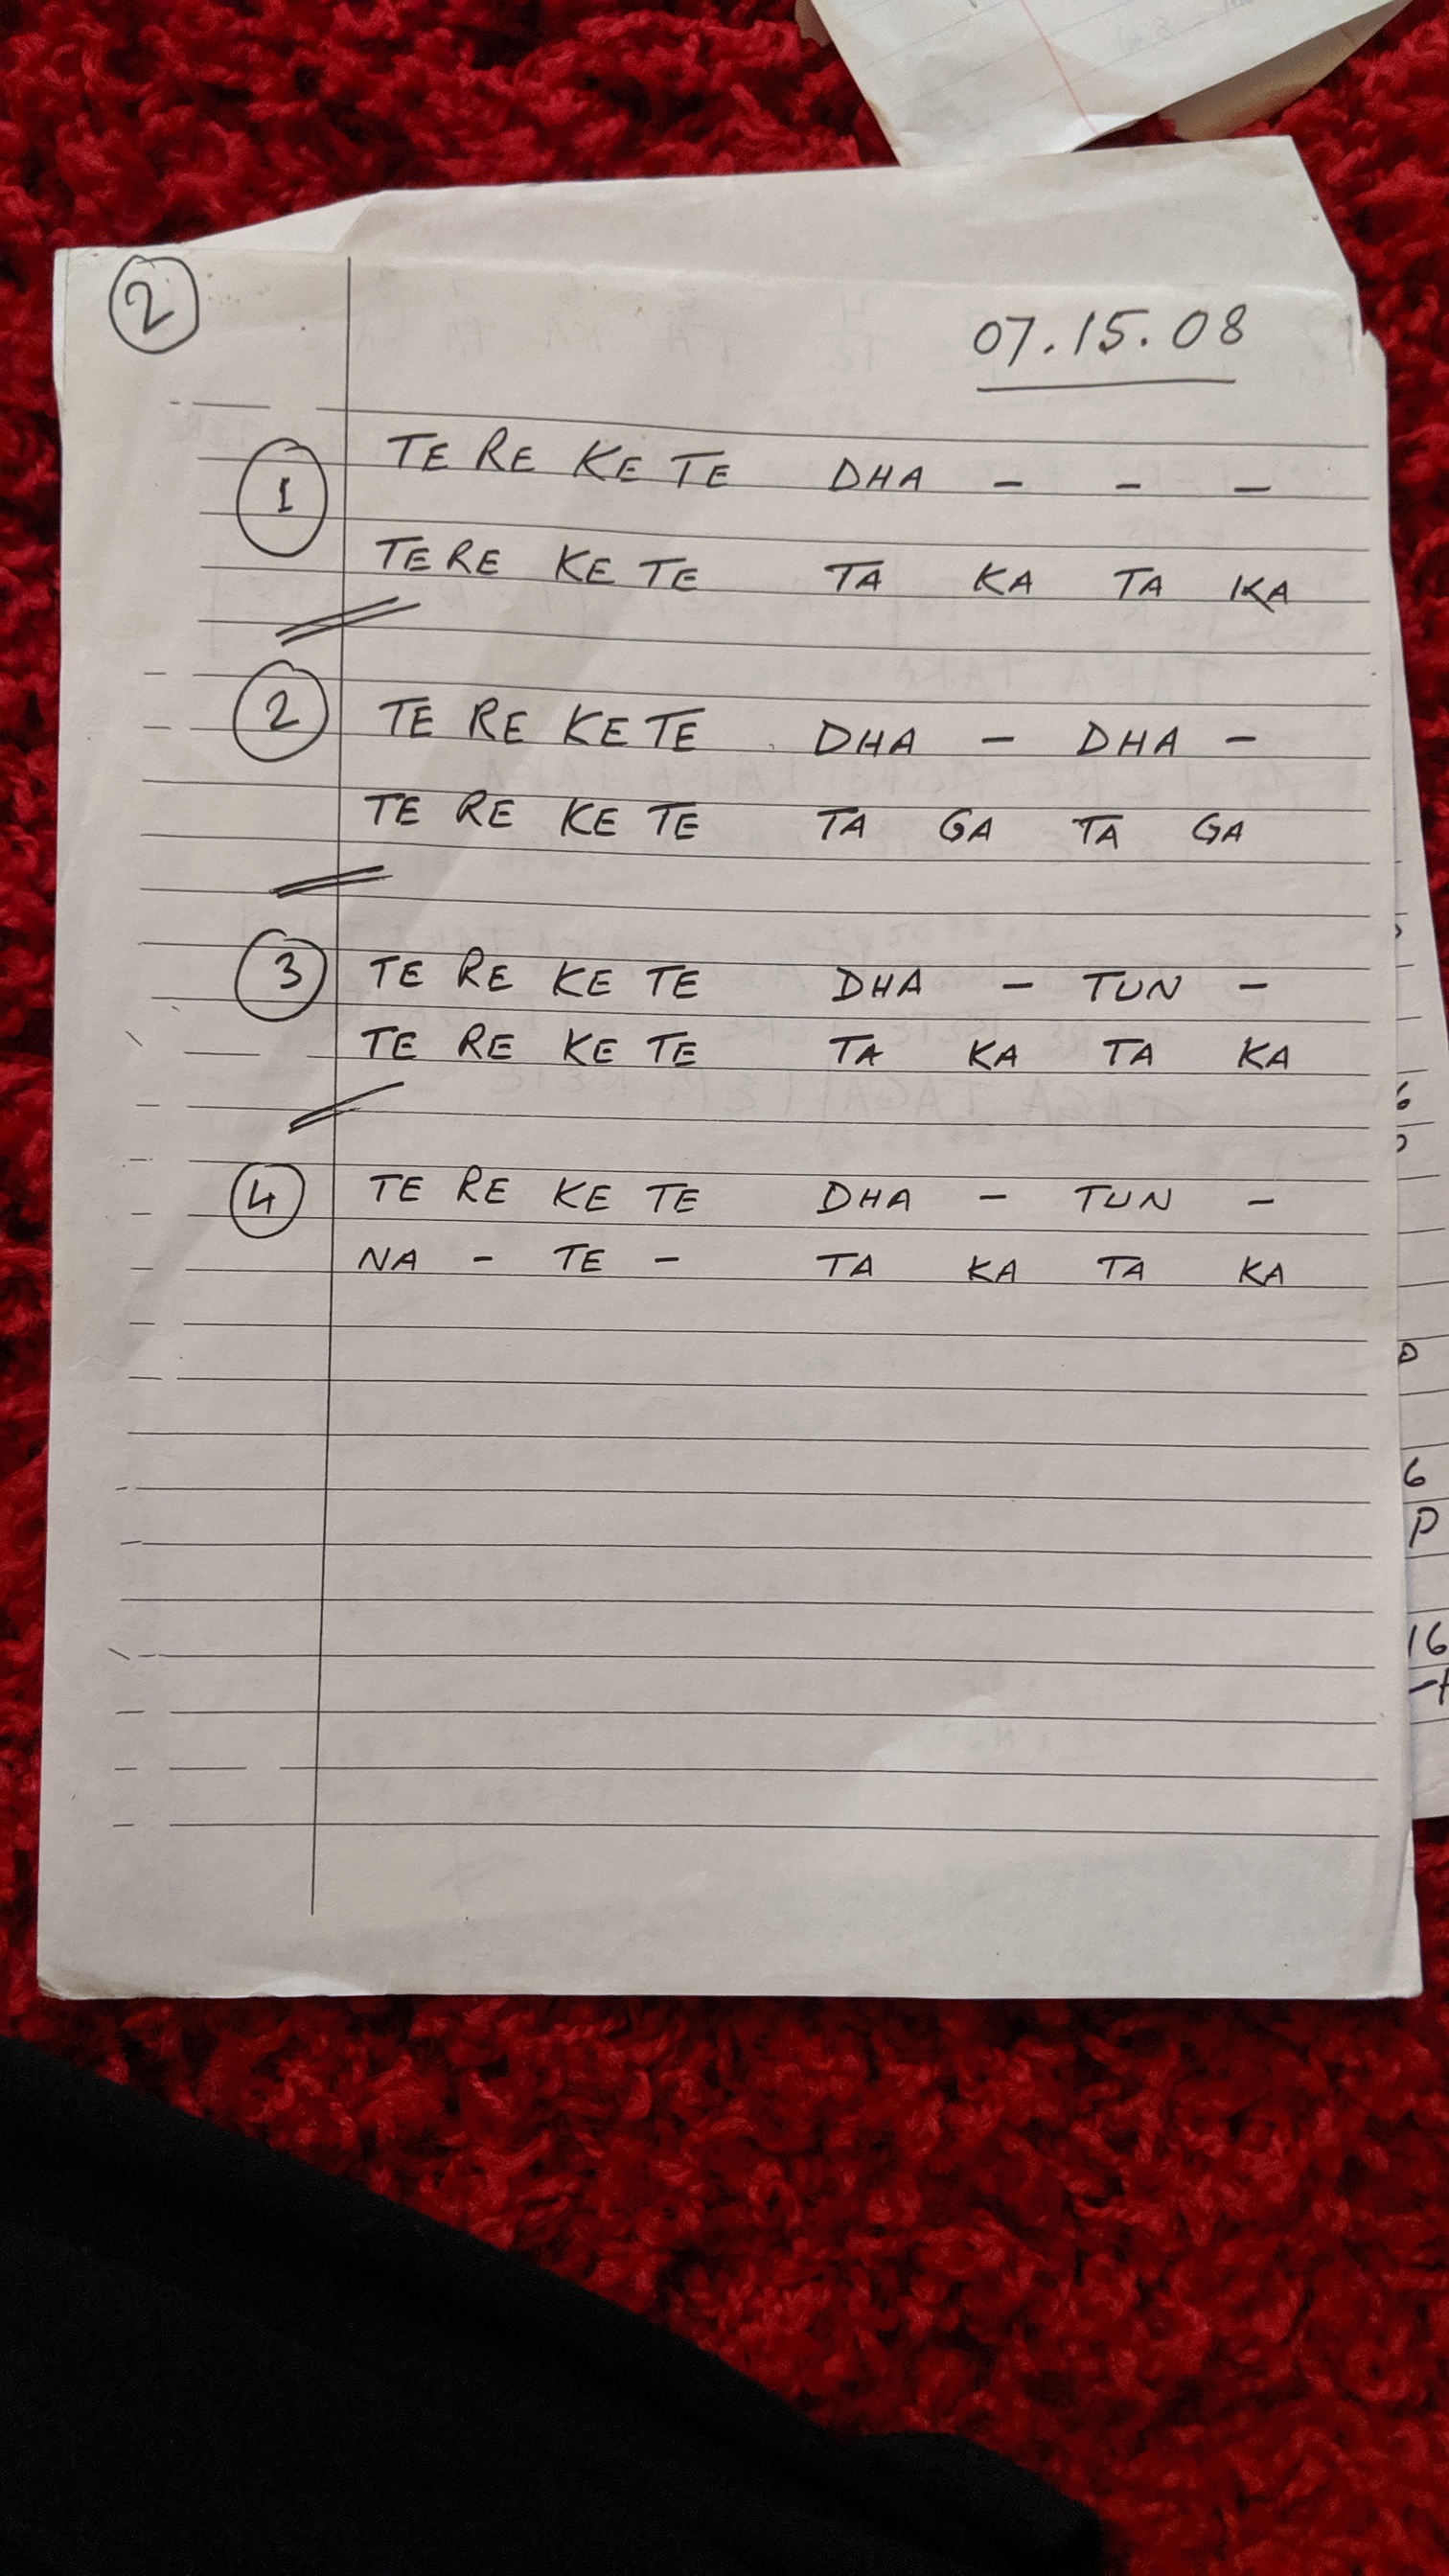 2
07.15.08
1 TE RE KE TE DHA - - -
TE RE KE TE TA KA TA KA
2 TE RE KE TE DHA - DHA -
TE RE KE TE TA GA TA GA
3 TE RE KE TE DHA - TUN -
TE RE KE TE TA KA TA KA
4 TE RE KE TE DHA - TUN -
NA - TE - TA KA TA KA
6
P
16